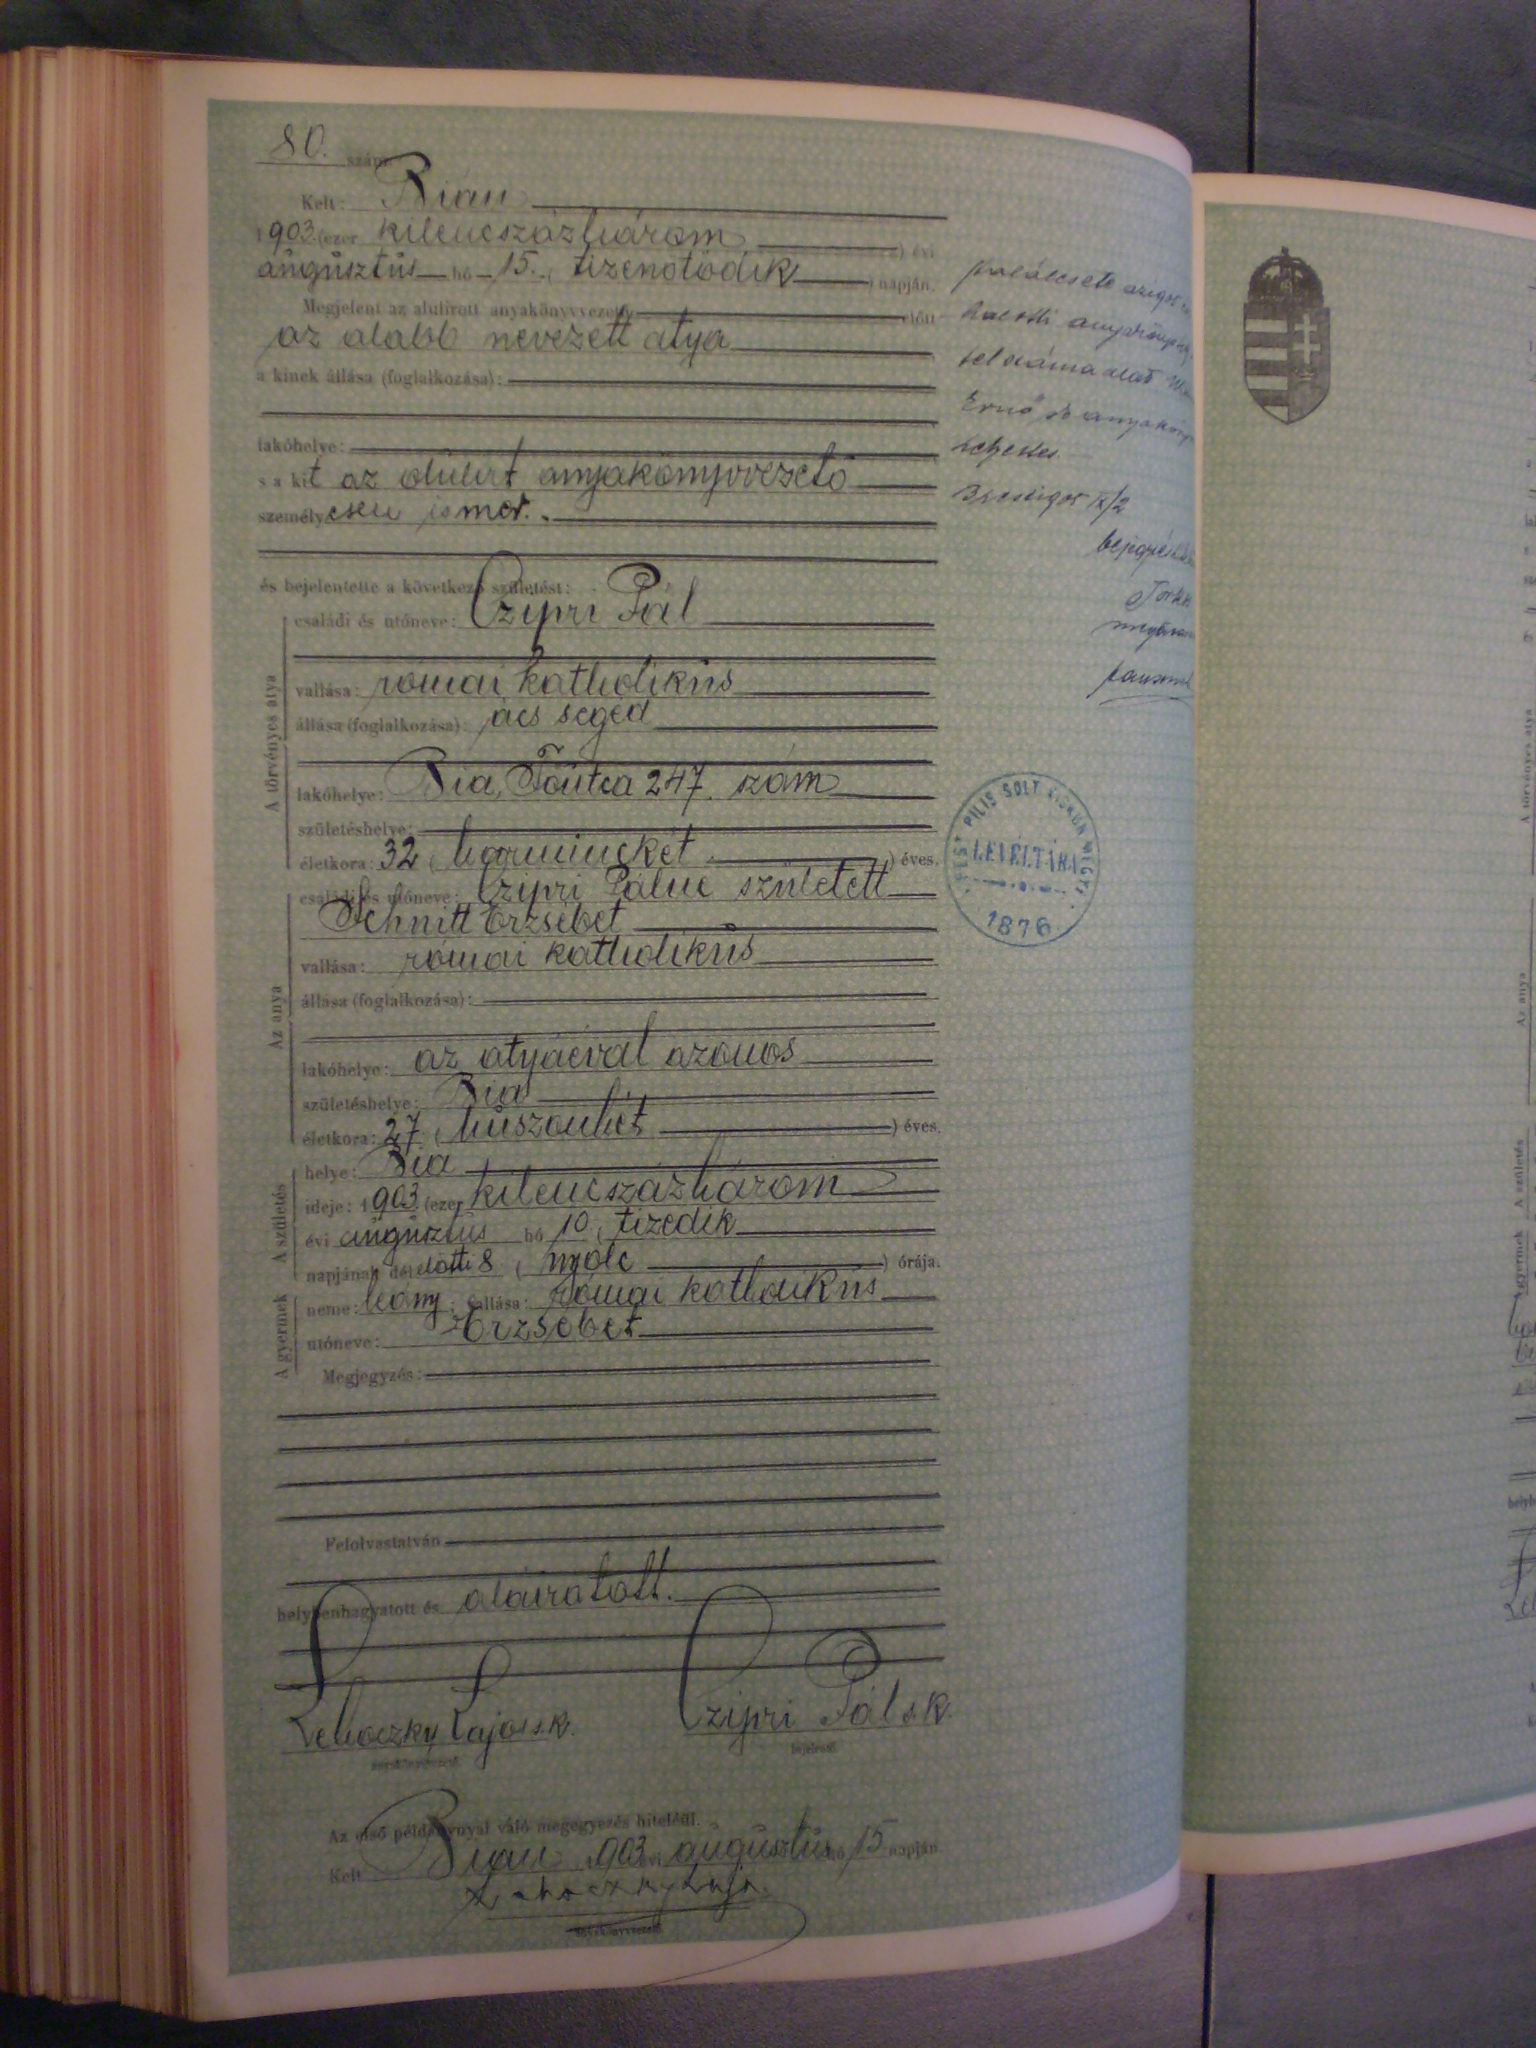 80. szám
Kelt: Bián
1903. (ezer kilencszázhárom ) évi
augusztus hó 15. (tizenötödik ) napján.
Megjelent az alulirott anyakönyvvezető előtt
az alább nevezett atya
a kinek állása (foglalkozása):
lakóhelye:
s a kit az alulirt anyakönyvvezető
személyesen ismer.
és bejelentette a következő születést:
A törvényes atya
családi és utóneve: Czipri Pál
vallása: római katholikus
állása (foglalkozása): ács segéd
lakóhelye: Bia, Főutca 247. szám
születéshelye:
életkora: 32 (harminckét ) éves.
Az anya
családi és utóneve: Czipri Pálné született
Schnitt Erzsébet
vallása: római katholikus
állása (foglalkozása):
lakóhelye: az atyáéval azonos
születéshelye: Bia
életkora: 27 (huszonhét ) éves.
A születés
helye: Bia
ideje: 1903. (ezer kilencszázhárom
évi augusztus hó 10 (tizedik
napjának délelőtti 8 (nyolc ) órája.
A gyermek
neme: leány; vallása: római katholikus
utóneve: Erzsébet
Megjegyzés:
Felolvastatván
helybenhagyatott és aláiratott.
Lehoczky Lajos s.k. Czipri Pál s.k.
anyakönyvvezető bejelentő
Az első példánynyal való megegyezés hiteléül.
Kelt Bián 1903 évi augusztus hó 15 napján.
Lehoczky Lajos
anyakönyvvezető
halotti
Ernő
bejegyzés
PEST PILIS SOLT KISKUN MEGYE
LEVÉLTÁRA
1876
A törvényes atya
Az anya
A születés
A gyermek